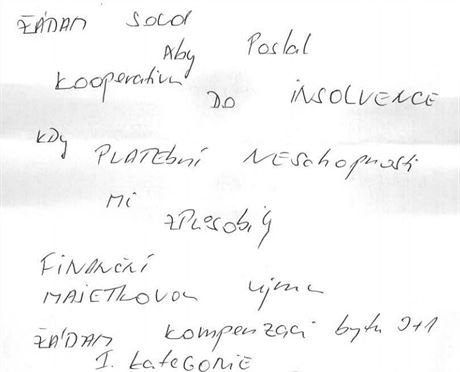 ŽÁDÁM SOUD
Aby Poslal
Kooperativu
DO INSOLVENCE
KDY PLATEBNÍ NESCHOPNOSTI
MI
ZPŮSOBILY
FINANČNÍ
MAJETKOVOU újmu
ŽÁDÁM kompenzaci bytu 3+1
I. KATEGORIE